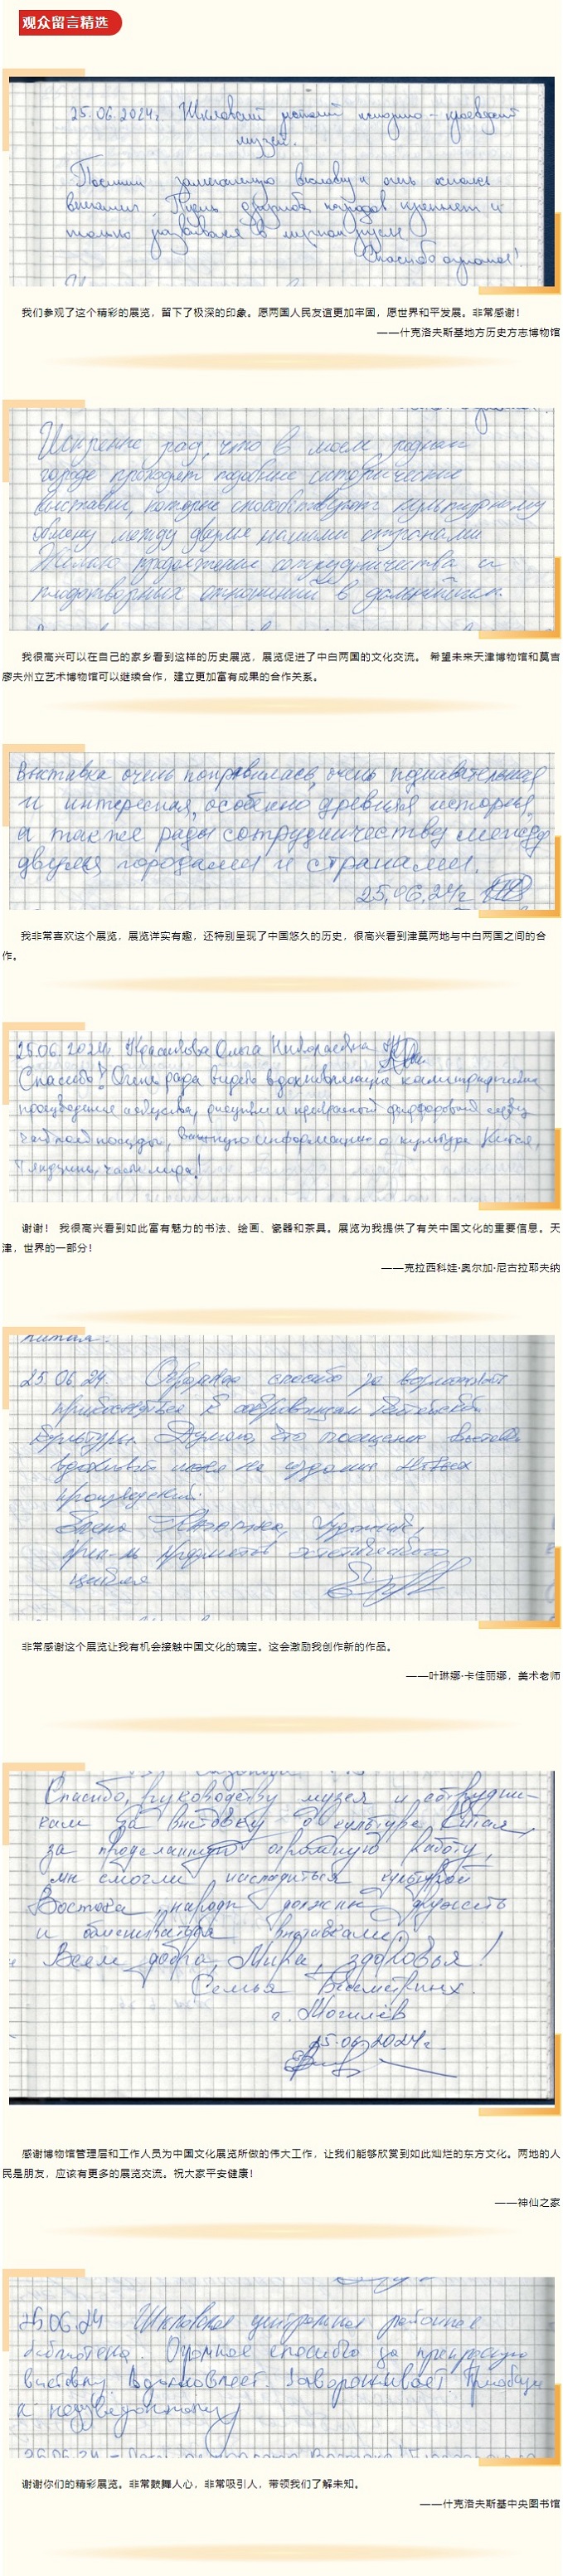 观众留言精选
25.06.2024г. Шкловский районный историко-краеведческий
музей.
Посетили замечательную выставку и очень
впечатлил. Пусть дружба народов крепнет и
только развивается в мирном русле.
Спасибо огромное!
我们参观了这个精彩的展览，留下了极深的印象。愿两国人民友谊更加牢固，愿世界和平发展。非常感谢！
——什克洛夫斯基地方历史方志博物馆
Искренне рад, что в моем родном
городе проходят подобные исторические
выставки, которые способствуют культурному
обмену между двумя нашими странами
Желаю продолжение сотрудничества и
плодотворных отношений в дальнейшем.
我很高兴可以在自己的家乡看到这样的历史展览，展览促进了中白两国的文化交流。 希望未来天津博物馆和莫吉
廖夫州立艺术博物馆可以继续合作，建立更加富有成果的合作关系。
Выставка очень понравилась, очень познавательная
и интересная, особенно древняя история,
а также рады сотрудничеству между
двумя городами и странами.
25.06.24г
我非常喜欢这个展览，展览详实有趣，还特别呈现了中国悠久的历史，很高兴看到津莫两地与中白两国之间的合
作。
25.06.2024г. Красикова Ольга Николаевна
Спасибо! Очень рада видеть вдохновляющие каллиграфические
произведения искусства, рисунки и прекрасный фарфоровый
чайной посуды, важную информацию о культуре Китая,
Тяньцзинь, часть мира!
谢谢！ 我很高兴看到如此富有魅力的书法、绘画、瓷器和茶具。展览为我提供了有关中国文化的重要信息。天
津，世界的一部分！
——克拉西科娃·奥尔加·尼古拉耶夫纳
25.06.24. Огромное спасибо за возможность
прикоснуться к сокровищам китайской
культуры. Думаю, что посещение выставки
вдохновит меня на создание новых
произведений.
Елена художник,
предметов эстетического
цикла
非常感谢这个展览让我有机会接触中国文化的瑰宝。这会激励我创作新的作品。
——叶琳娜·卡佳丽娜，美术老师
Спасибо, руководству музея и сотрудни-
кам за выставку о культуре Китая,
за проделанную огромную работу,
мы смогли насладиться культурой
Востока, народы должны дружить
и обмениваться выставками.
Всем добра, Мира, здоровья!
Семья
г. Могилёв
25.06.2024г.
感谢博物馆管理层和工作人员为中国文化展览所做的伟大工作，让我们能够欣赏到如此灿烂的东方文化。两地的人
民是朋友，应该有更多的展览交流。祝大家平安健康！
——神仙之家
25.06.24 Шкловская центральная районная
библиотека. Огромное спасибо за прекрасную
выставку. Вдохновляет. Завораживает. Приобщает
к неизведанному
谢谢你们的精彩展览。非常鼓舞人心，非常吸引人，带领我们了解未知。
——什克洛夫斯基中央图书馆